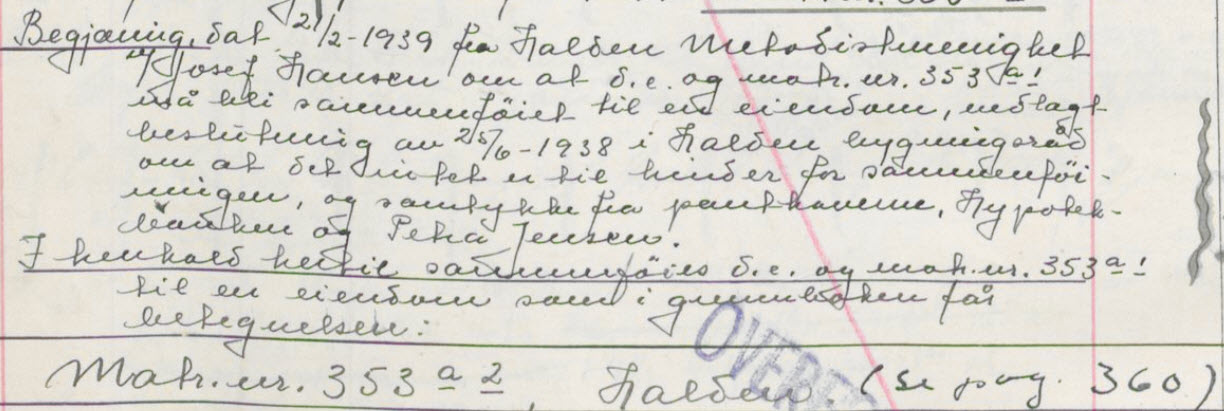 Begjæring, dat. 21/2-1939 fra Halden Metodistmenighet
v/ Josef Hansen om at d.e. og matr. nr. 353 a 1
må bli sammenføiet til en eiendom, vedlagt
beslutning av 25/6-1938 i Halden bygningsråd
om at det intet er til hinder for sammenføi-
ningen, og samtykke fra panthaverne, Hypotek-
banken og Petra Jensen.
I henhold hertil sammenføies d.e. og matr. nr. 353 a 1
til en eiendom som i grunnboken får
betegnelsen:
Matr. nr. 353 a 2, Halden. (Se pag. 360)